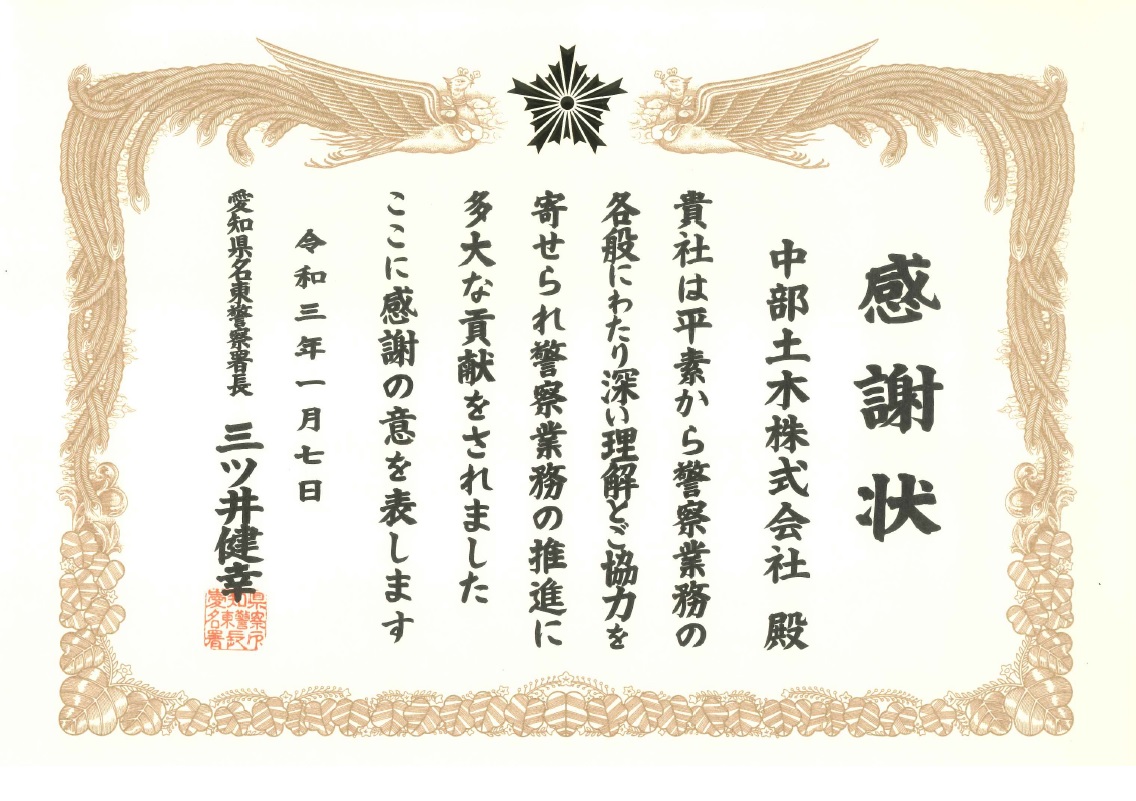 感謝状
中部土木株式会社 殿
貴社は平素から警察業務の
各般にわたり深い理解とご協力を
寄せられ警察業務の推進に
多大な貢献をされました
ここに感謝の意を表します
令和三年一月七日
愛知県名東警察署長 三ツ井健幸